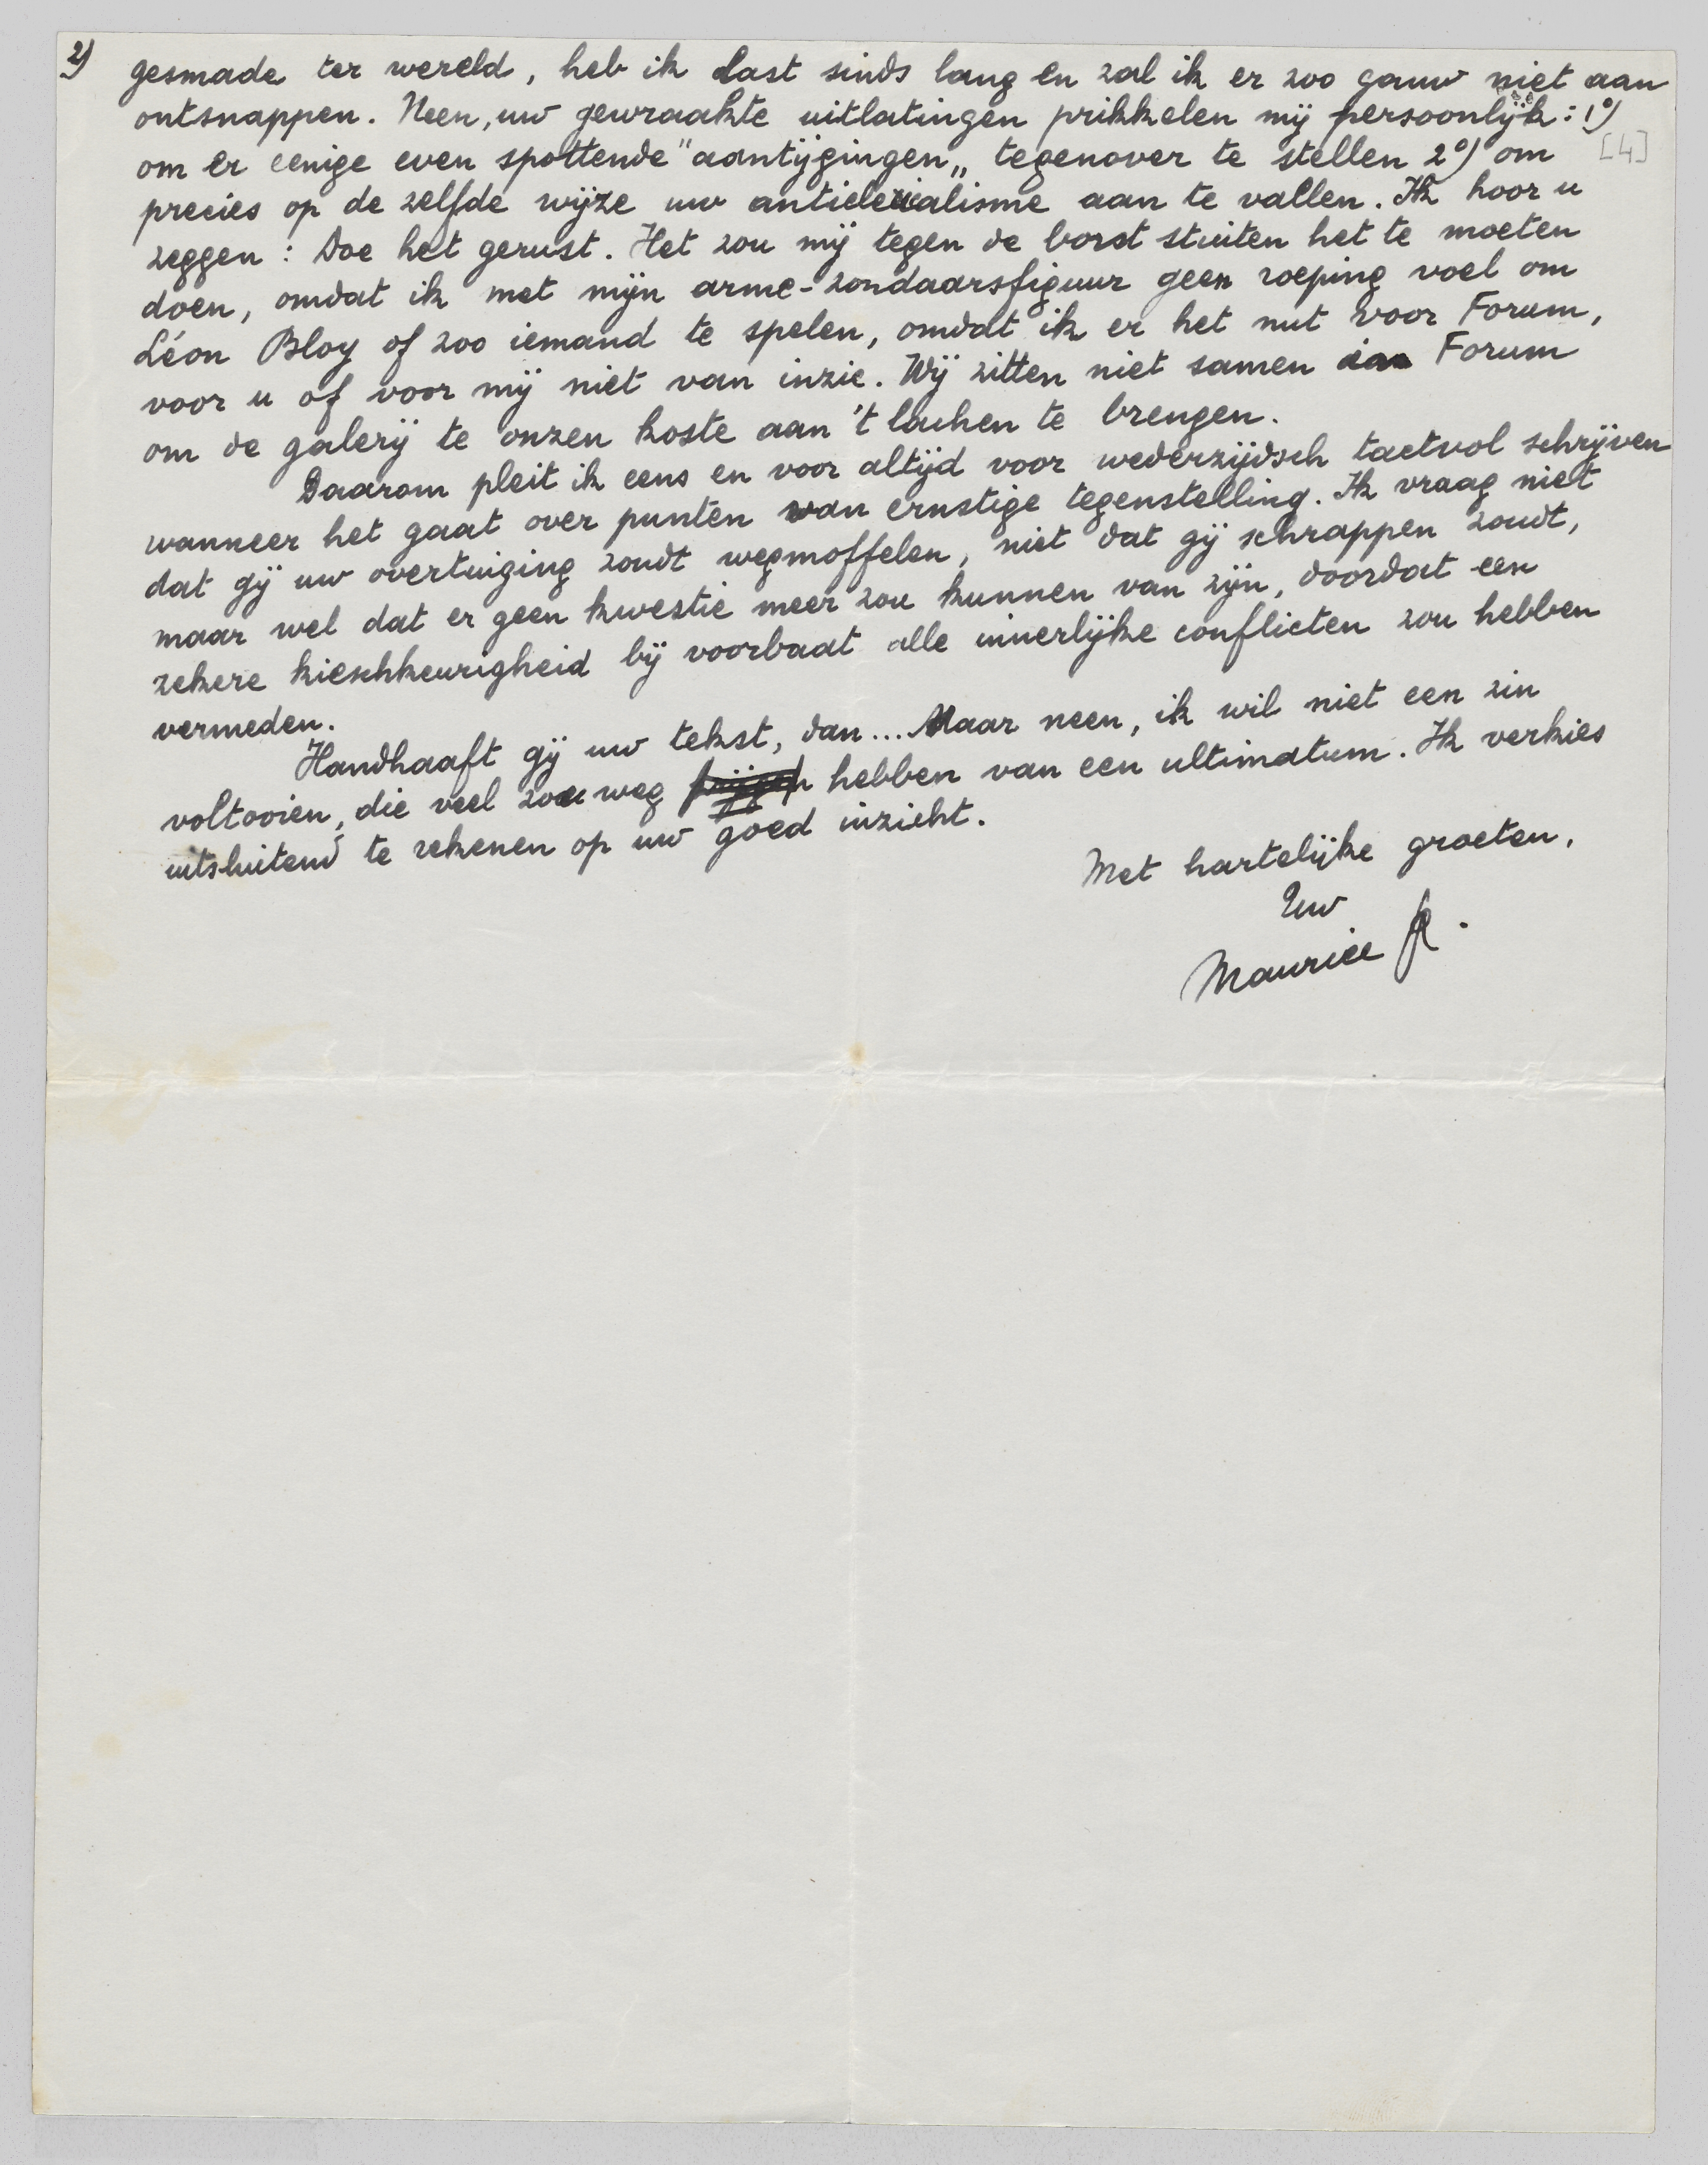 2) gesmade ter wereld, heb ik last sinds lang en zal ik er zoo gauw niet aan
ontsnappen. Neen, uw gewraakte uitlatingen prikkelen mij persoonlijk: 1º)
om er eenige even spottende "aantijgingen„ tegenover te stellen 2º) om [4]
precies op de zelfde wijze uw anticlericalisme aan te vallen. Ik hoor u
zeggen: Doe het gerust. Het zou mij tegen de borst stuiten het te moeten
doen, omdat ik met mijn arme-zondaarsfiguur geen roeping voel om
Léon Bloy of zoo iemand te spelen, omdat ik er het nut voor Forum,
voor u of voor mij niet van inzie. Wij zitten niet samen in Forum
om de galerij te onzen koste aan 't lachen te brengen.
Daarom pleit ik eens en voor altijd voor wederzijdsch tactvol schrijven
wanneer het gaat over punten van ernstige tegenstelling. Ik vraag niet
dat gij uw overtuiging zoudt wegmoffelen, niet dat gij schrappen zoudt,
maar wel dat er geen kwestie meer zou kunnen van zijn, doordat een
zekere kieschkeurigheid bij voorbaat alle innerlijke conflicten zou hebben
vermeden.
Handhaaft gij uw tekst, dan... Maar neen, ik wil niet een zin
voltooien, die veel zou weg hebben van een ultimatum. Ik verkies
uitsluitend te rekenen op uw goed inzicht.
Met hartelijke groeten,
Uw
Maurice R.